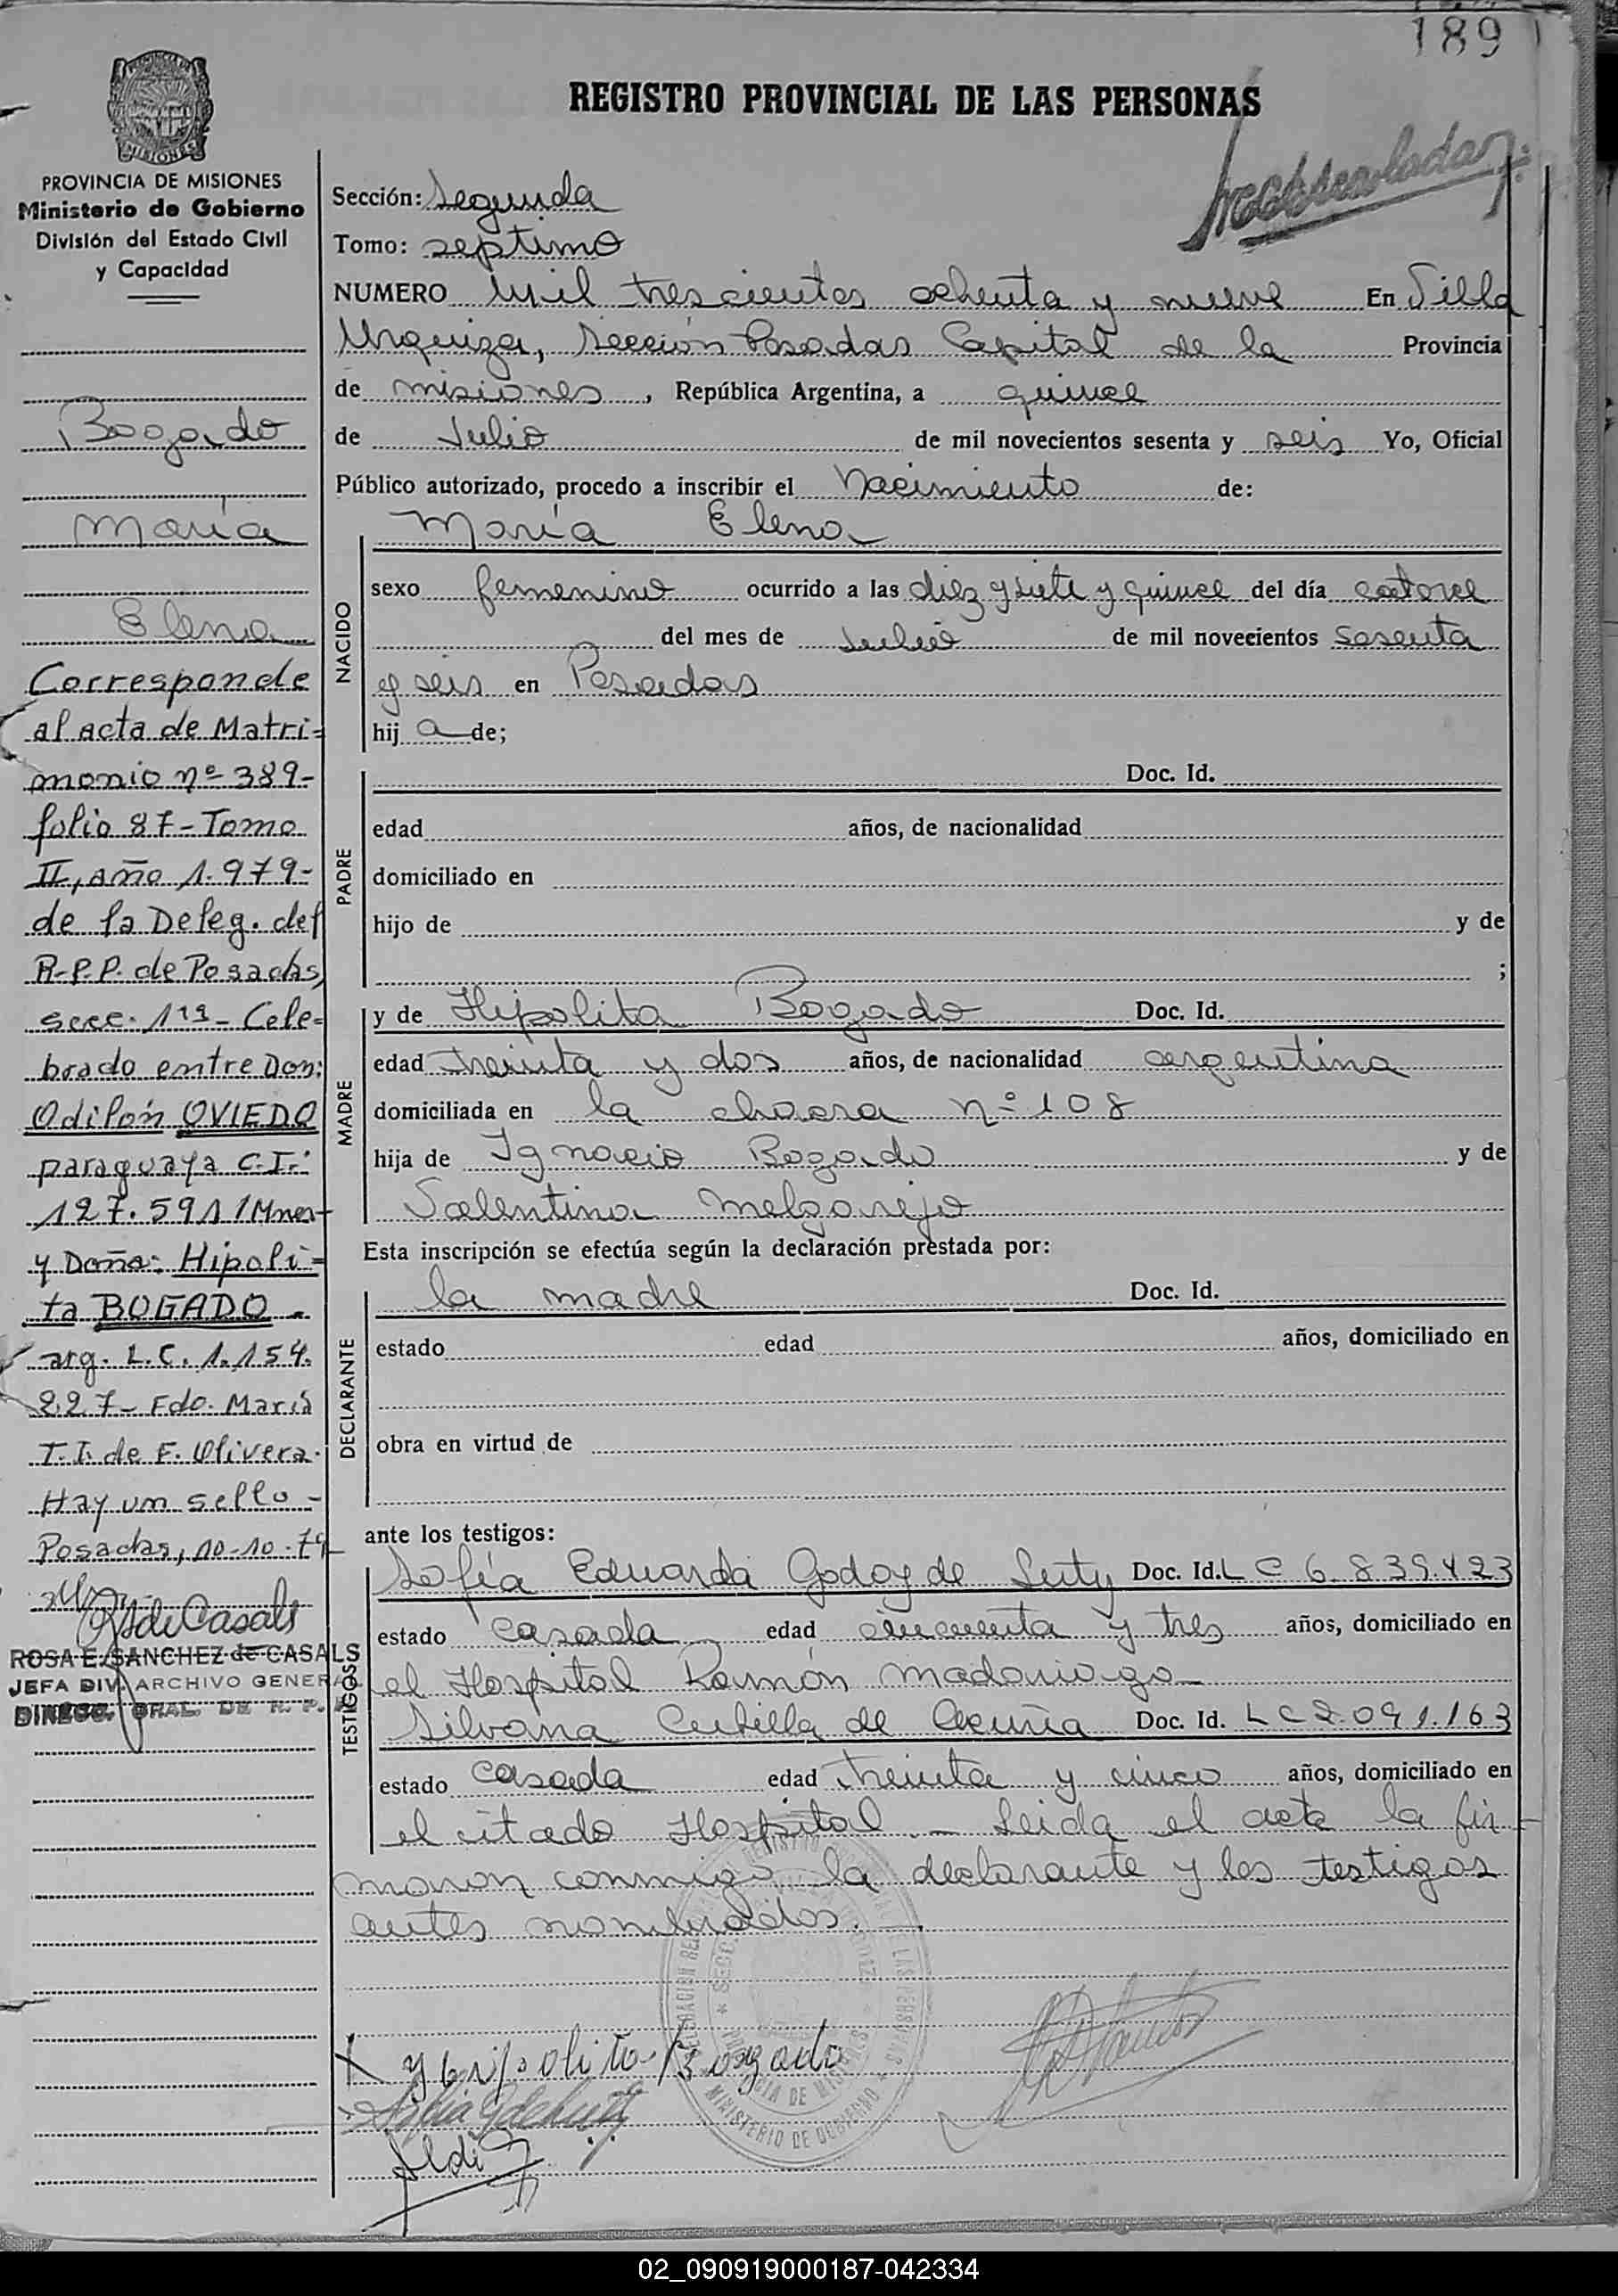 189
REGISTRO PROVINCIAL DE LAS PERSONAS
MISIONES
PROVINCIA DE MISIONES
Ministerio de Gobierno
División del Estado Civil
y Capacidad
Bogado
María
Elena
Corresponde
al acta de Matri=
monio nº 389-
folio 87-Tomo
II, año 1.979-
de la Deleg. del
R.P.P. de Posadas,
secc. 1ra - Cele=
brado entre Don:
Odilón OVIEDO
paraguaya C.I.:
127.591/Mnes-
y Doña: Hipoli=
ta BOGADO -
arg. L.C. 1.154.
227- Fdo. María
T.I. de F. Olivera.
Hay un sello -
Posadas, 10-10-79
ROSA E. SANCHEZ de CASALS
JEFA DIV. ARCHIVO GENERAL
DIRECC. GRAL. DE R. P.
Sección: Segunda
Tomo: septimo
NUMERO mil trescientos ochenta y nueve En Villa
Urquiza, Sección Posadas Capital de la Provincia
de misiones, República Argentina, a quince
de Julio de mil novecientos sesenta y seis Yo, Oficial
Público autorizado, procedo a inscribir el Nacimiento de:
NACIDO
María Elena
sexo femenino ocurrido a las diez y siete y quince del día catorce
del mes de Julio de mil novecientos sesenta
y seis en Posadas
hij a de;
PADRE
Doc. Id.
edad años, de nacionalidad
domiciliado en
hijo de y de
;
MADRE
y de Hipolita Bogado Doc. Id.
edad treinta y dos años, de nacionalidad argentina
domiciliada en la chacra nº 108
hija de Ignacio Bogado y de
Valentina Melgarejo
Esta inscripción se efectúa según la declaración prestada por:
DECLARANTE
la madre Doc. Id.
estado edad años, domiciliado en
obra en virtud de
ante los testigos:
TESTIGOS
Sofía Eduarda Godoy de Doc. Id. L C 6.839.423
estado casada edad cincuenta y tres años, domiciliado en
el Hospital Ramón Madariaga
Silvana Cubilla de Acuña Doc. Id. L C 2.091.163
estado casada edad treinta y cinco años, domiciliado en
el citado Hospital. - Leida el acta la fir-
maron conmigo la declarante y los testigos
antes nombrados. -
MINISTERIO DE GOBIERNO
Bogado
02_090919000187-042334